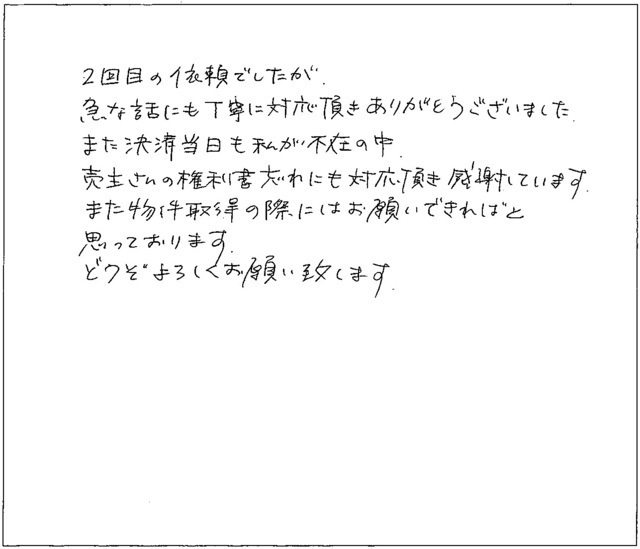 2回目の依頼でしたが、
急な話にも丁寧に対応頂きありがとうございました。
また決済当日も私が不在の中、
売主さんの権利書忘れにも対応頂き感謝しています。
また物件取得の際にはお願いできればと
思っております。
どうぞよろしくお願い致します。